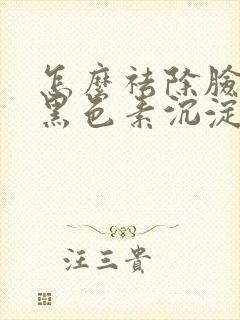 怎麼祛除臉
黑色素沉淀
汪三貴